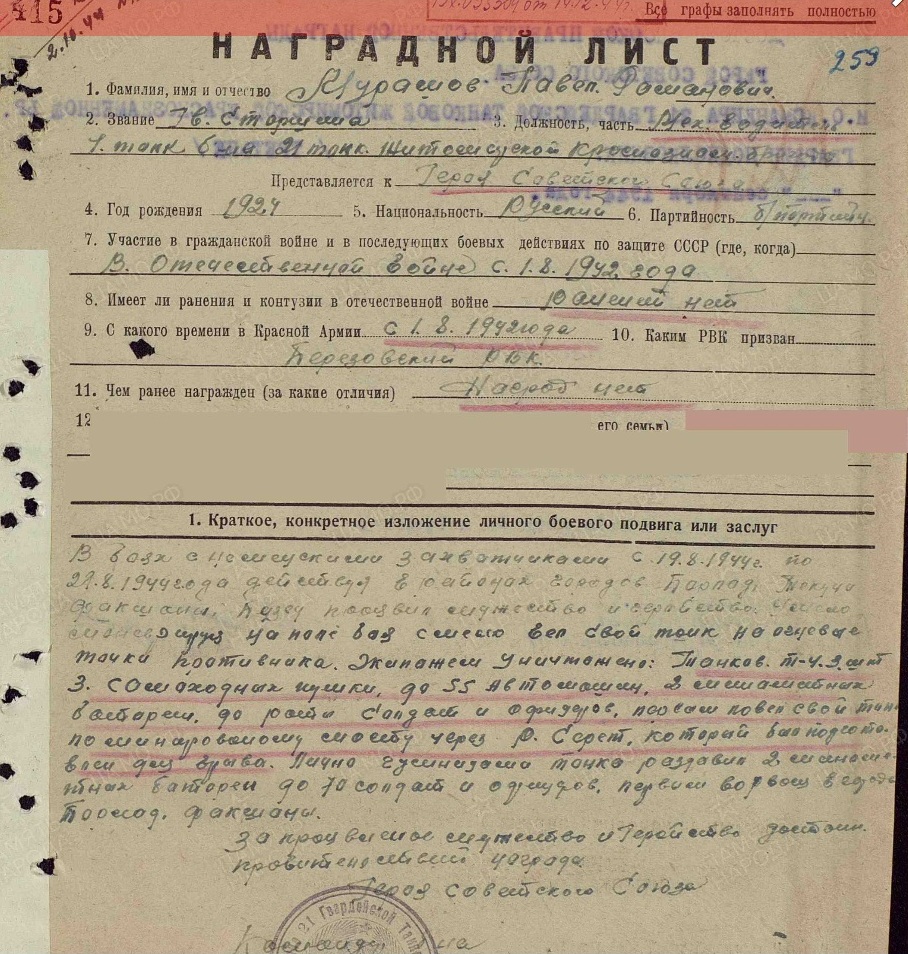 415
2.10.44
Все графы заполнять полностью
НАГРАДНОЙ ЛИСТ
259
1. Фамилия, имя и отчество Мурашов Павел Романович.
2. Звание Гв. Старшина 3. Должность, часть Мех. Водитель
1. танк. б-на 21 танк. Житомирской Краснознам. бригады
Представляется к Героя Советского Союза
4. Год рождения 1924 5. Национальность Русский 6. Партийность б/партийн.
7. Участие в гражданской войне и в последующих боевых действиях по защите СССР (где, когда)
В Отечественной Войне с 1.8.1942 года
8. Имеет ли ранения и контузии в отечественной войне ранений нет
9. С какого времени в Красной Армии с 1.8.1942 года 10. Каким РВК призван
Березовский РВК.
11. Чем ранее награжден (за какие отличия) Наград нет
12
его семьи)
1. Краткое, конкретное изложение личного боевого подвига или заслуг
В боях с немецкими захватчиками с 19.8.1944г. по
8.1944 года действуя в районах городов Бырлад, Текучи
Факшаны, Бузеу проявил мужество и геройство. Умело
маневрируя на поле боя смело вел свой танк на огневые
точки противника. Экипажем уничтожено: Танков. Т-4. 3 шт
3. самоходных пушки, до 55 Автомашин, 2 минометных
батареи, до роты солдат и офицеров, первым повел свой танк
по минированому мосту через р. Серет, который был подгото-
влен для взрыва. Лично гусеницами танка раздавил 2 миноме-
тных батареи до 70 солдат и офицеров, первым ворвался в город
Факшаны.
За проявленое мужество и Геройство достоин
правительственной награды
Героя Советского Союза
21 Гвардейской Танк
Командир